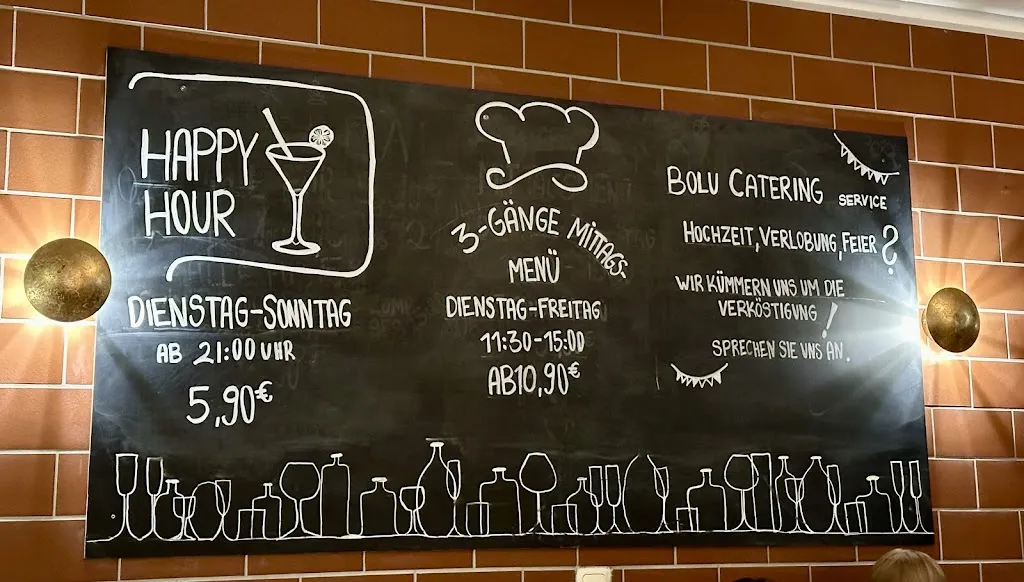 HAPPY
HOUR
DIENSTAG-SONNTAG
AB 21:00 UHR
5,90€
3-GÄNGE MITTAGS-
MENÜ
DIENSTAG-FREITAG
11:30-15:00
AB 10,90€
BOLU CATERING SERVICE
HOCHZEIT, VERLOBUNG, FEIER?
WIR KÜMMERN UNS UM DIE
VERKÖSTIGUNG!
SPRECHEN SIE UNS AN.